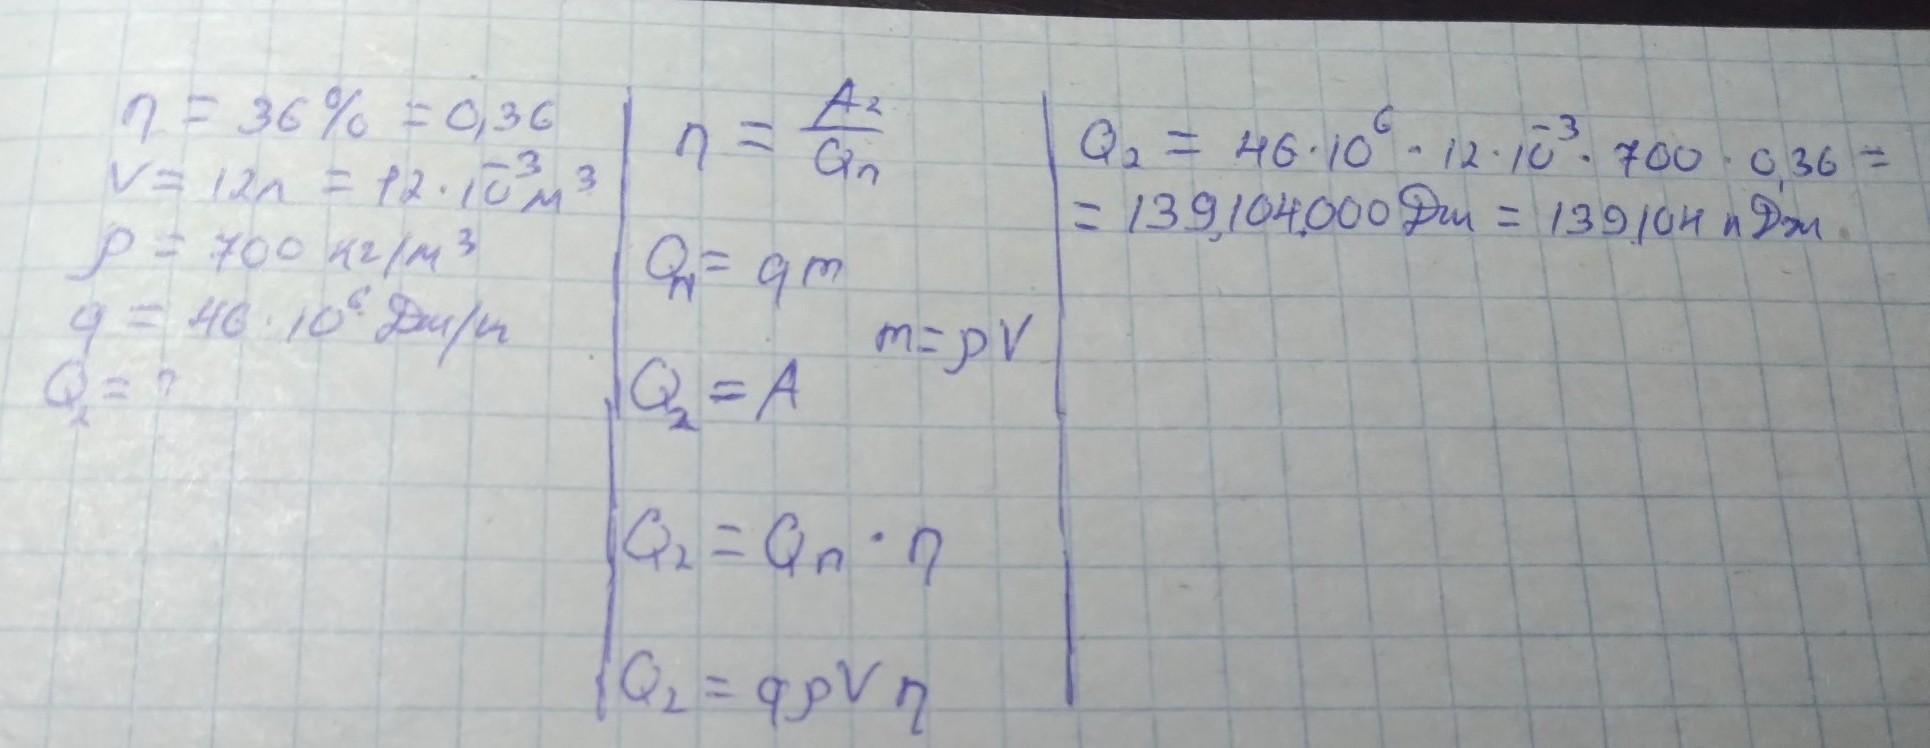 η = 36% = 0,36
V = 12л = 12·10⁻³м³
ρ = 700 кг/м³
q = 46·10⁶ Дж/кг
Q₂ = ?
η = A₂/Qп
Qп = qm
m = ρV
Q₂ = A
Q₂ = Qп · η
Q₂ = qρVη
Q₂ = 46·10⁶ · 12·10⁻³ · 700 · 0,36 =
= 139,104,000 Дж = 139,104 кДж.